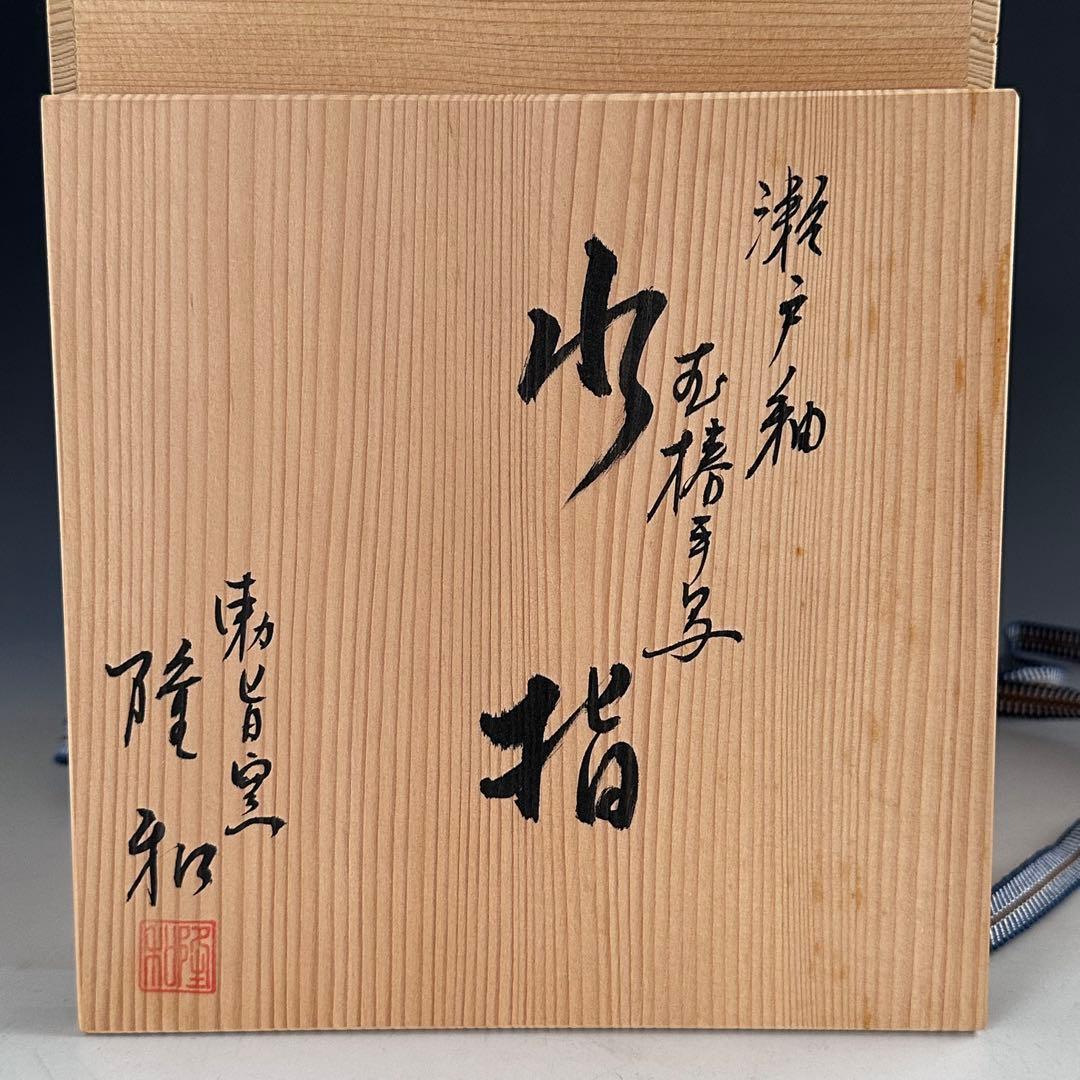 瀬戸釉
玉椿手写
水指
勅旨窯
隆和
隆和